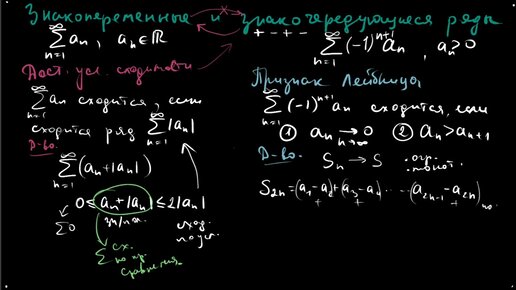 Знакопеременные и знакочередующиеся ряды
∑_{n=1}^{∞} a_n , a_n ∈ ℝ
+ − + −
∑_{n=1}^{∞} (−1)^{n+1} a_n , a_n ≥ 0
Дост. усл. сходимости
∑_{n=1}^{∞} a_n сходится, если
сходится ряд ∑_{n=1}^{∞} |a_n|
Д-во.
∑_{n=1}^{∞} (a_n + |a_n|)
0 ≤ a_n + |a_n| ≤ 2|a_n|
∑0
сход.
по усл.
∑ сх.
по пр.
сравнения.
Признак Лейбница
∑_{n=1}^{∞} (−1)^{n+1} a_n сходится, если
① a_n → 0 n→∞ ② a_n > a_{n+1}
Д-во. S_n → S
· огр.
· монот.
S_{2n} = (a_1 − a_2) + (a_3 − a_4) ... (a_{2n−1} − a_{2n})
+ + +